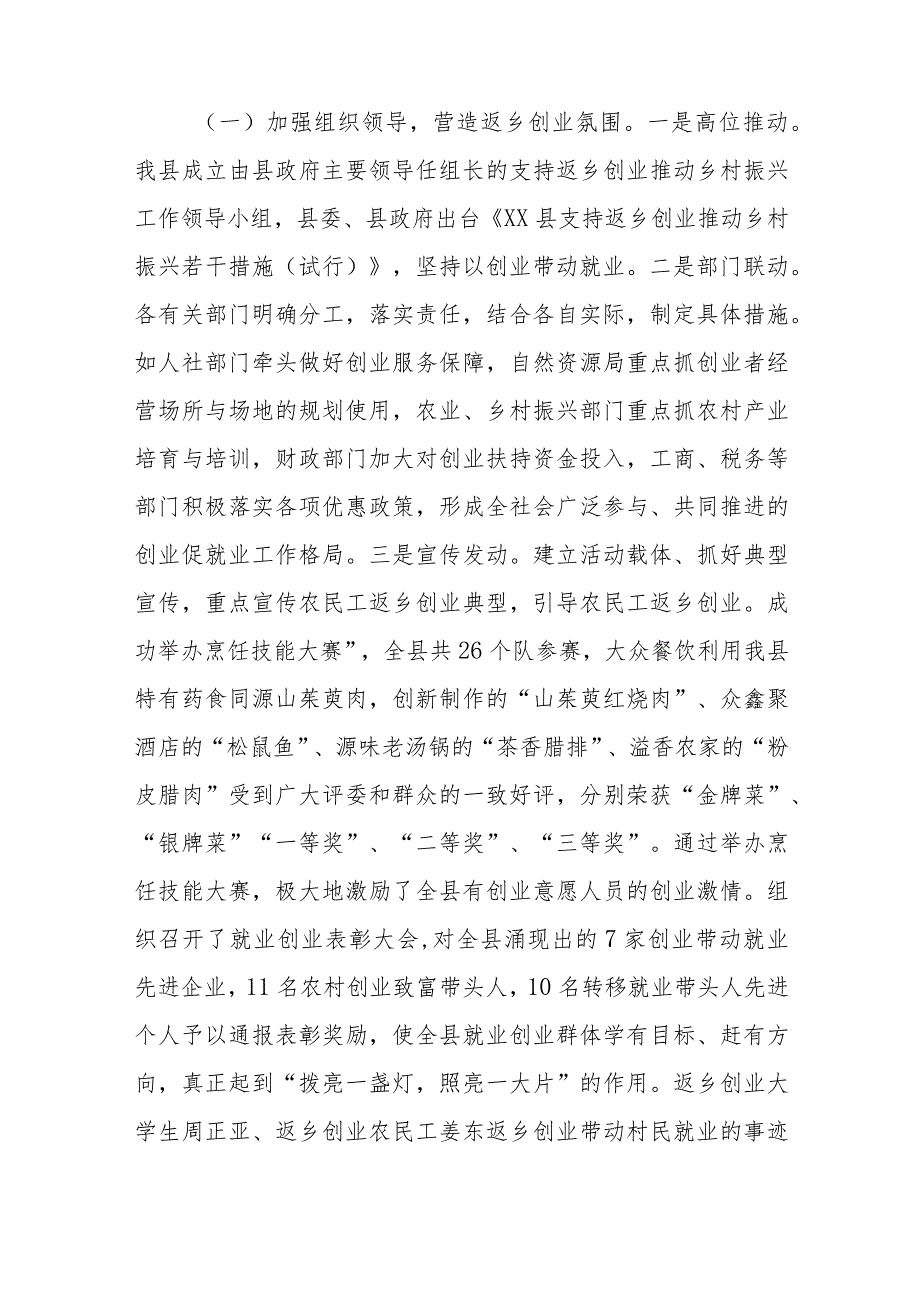 （一）加强组织领导，营造返乡创业氛围。一是高位推动。
我县成立由县政府主要领导任组长的支持返乡创业推动乡村振兴
工作领导小组，县委、县政府出台《XX县支持返乡创业推动乡村
振兴若干措施（试行）》，坚持以创业带动就业。二是部门联动。
各有关部门明确分工，落实责任，结合各自实际，制定具体措施。
如人社部门牵头做好创业服务保障，自然资源局重点抓创业者经
营场所与场地的规划使用，农业、乡村振兴部门重点抓农村产业
培育与培训，财政部门加大对创业扶持资金投入，工商、税务等
部门积极落实各项优惠政策，形成全社会广泛参与、共同推进的
创业促就业工作格局。三是宣传发动。建立活动载体、抓好典型
宣传，重点宣传农民工返乡创业典型，引导农民工返乡创业。成
功举办烹饪技能大赛”，全县共26个队参赛，大众餐饮利用我县
特有药食同源山茱萸肉，创新制作的“山茱萸红烧肉”、众鑫聚
酒店的“松鼠鱼”、源味老汤锅的“茶香腊排”、溢香农家的“粉
皮腊肉”受到广大评委和群众的一致好评，分别荣获“金牌菜”、
“银牌菜”“一等奖”、“二等奖”、“三等奖”。通过举办烹
饪技能大赛，极大地激励了全县有创业意愿人员的创业激情。组
织召开了就业创业表彰大会,对全县涌现出的7家创业带动就业
先进企业，11名农村创业致富带头人，10名转移就业带头人先进
个人予以通报表彰奖励，使全县就业创业群体学有目标、赶有方
向，真正起到“拨亮一盏灯，照亮一大片”的作用。返乡创业大
学生周正亚、返乡创业农民工姜东返乡创业带动村民就业的事迹